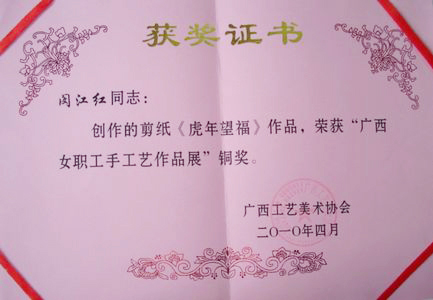 获奖证书
闵江红同志：
创作的剪纸《虎年望福》作品，荣获“广西
女职工手工艺作品展”铜奖。
广西工艺美术协会
二〇一〇年四月